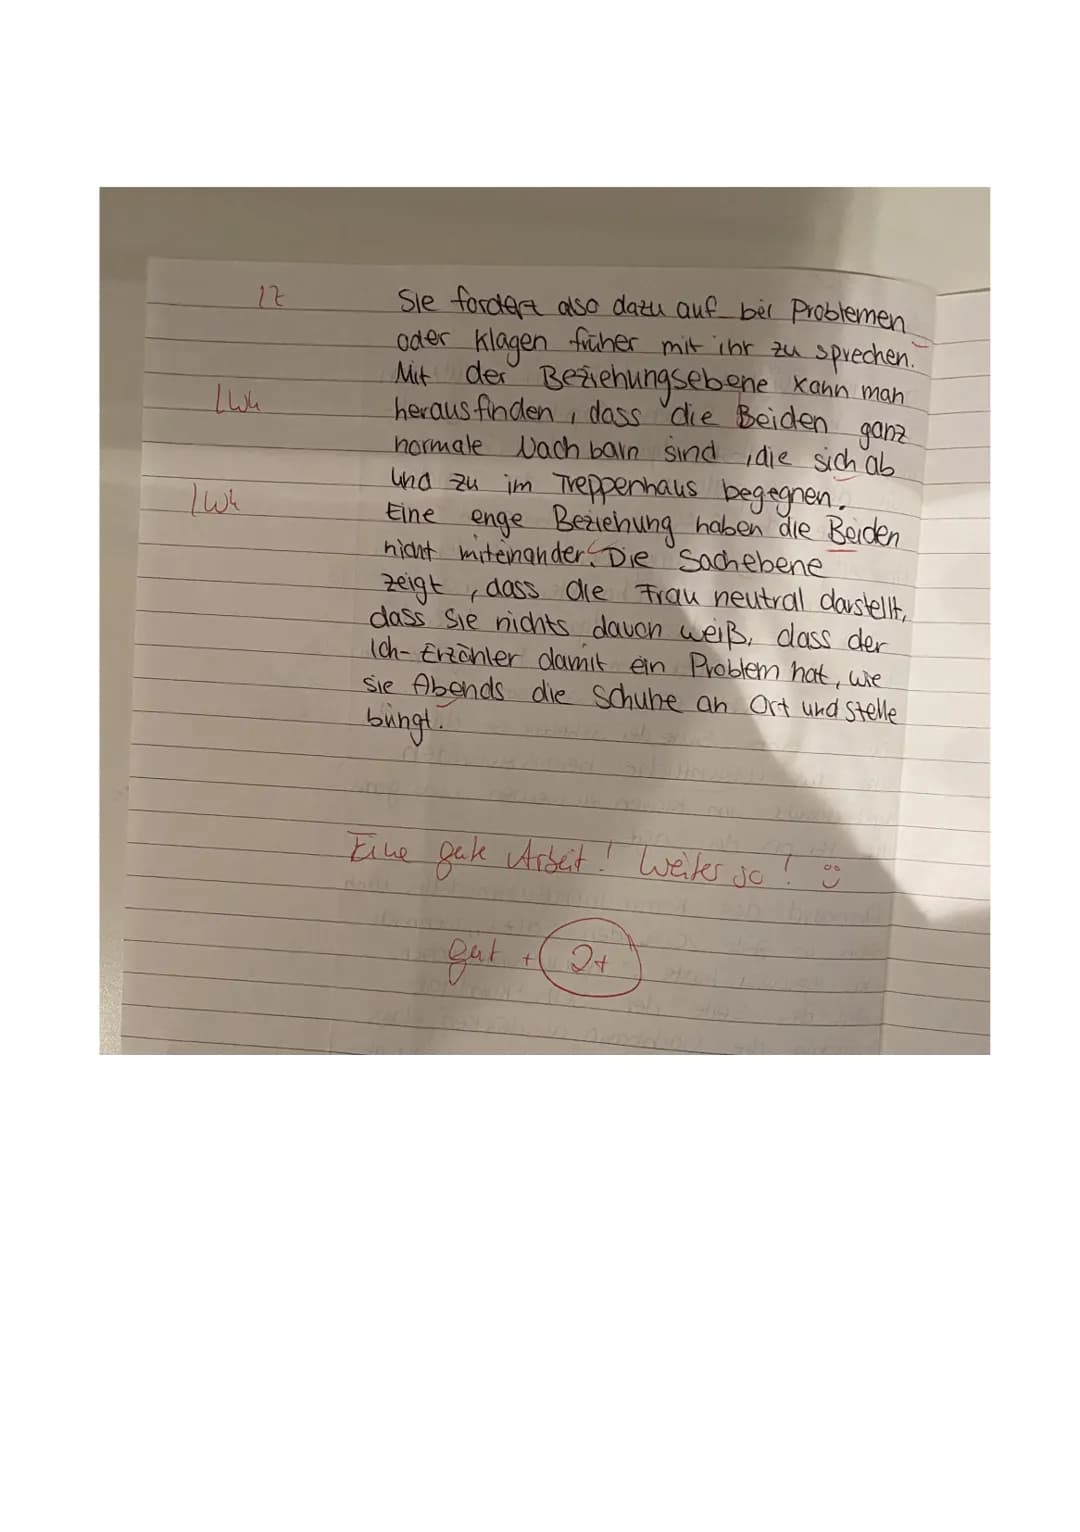 1Z
Sie fordert also dazu auf bei Problemen
oder Klagen früher mit ihr zu sprechen.
Mit der Beziehungsebene kann man
1Wh
herausfinden, dass die Beiden ganz
normale Nachbarn sind, die sich ab
und zu im Treppenhaus begegnen.
1Wh
Eine enge Beziehung haben die Beiden
nicht miteinander. Die Sachebene
zeigt, dass die Frau neutral darstellt,
dass Sie nichts davon weiß, dass der
Ich-Erzähler damit ein Problem hat, wie
sie Abends die Schuhe an Ort und Stelle
bringt.
Eine gute Arbeit! Weiter so!
gut + 2+